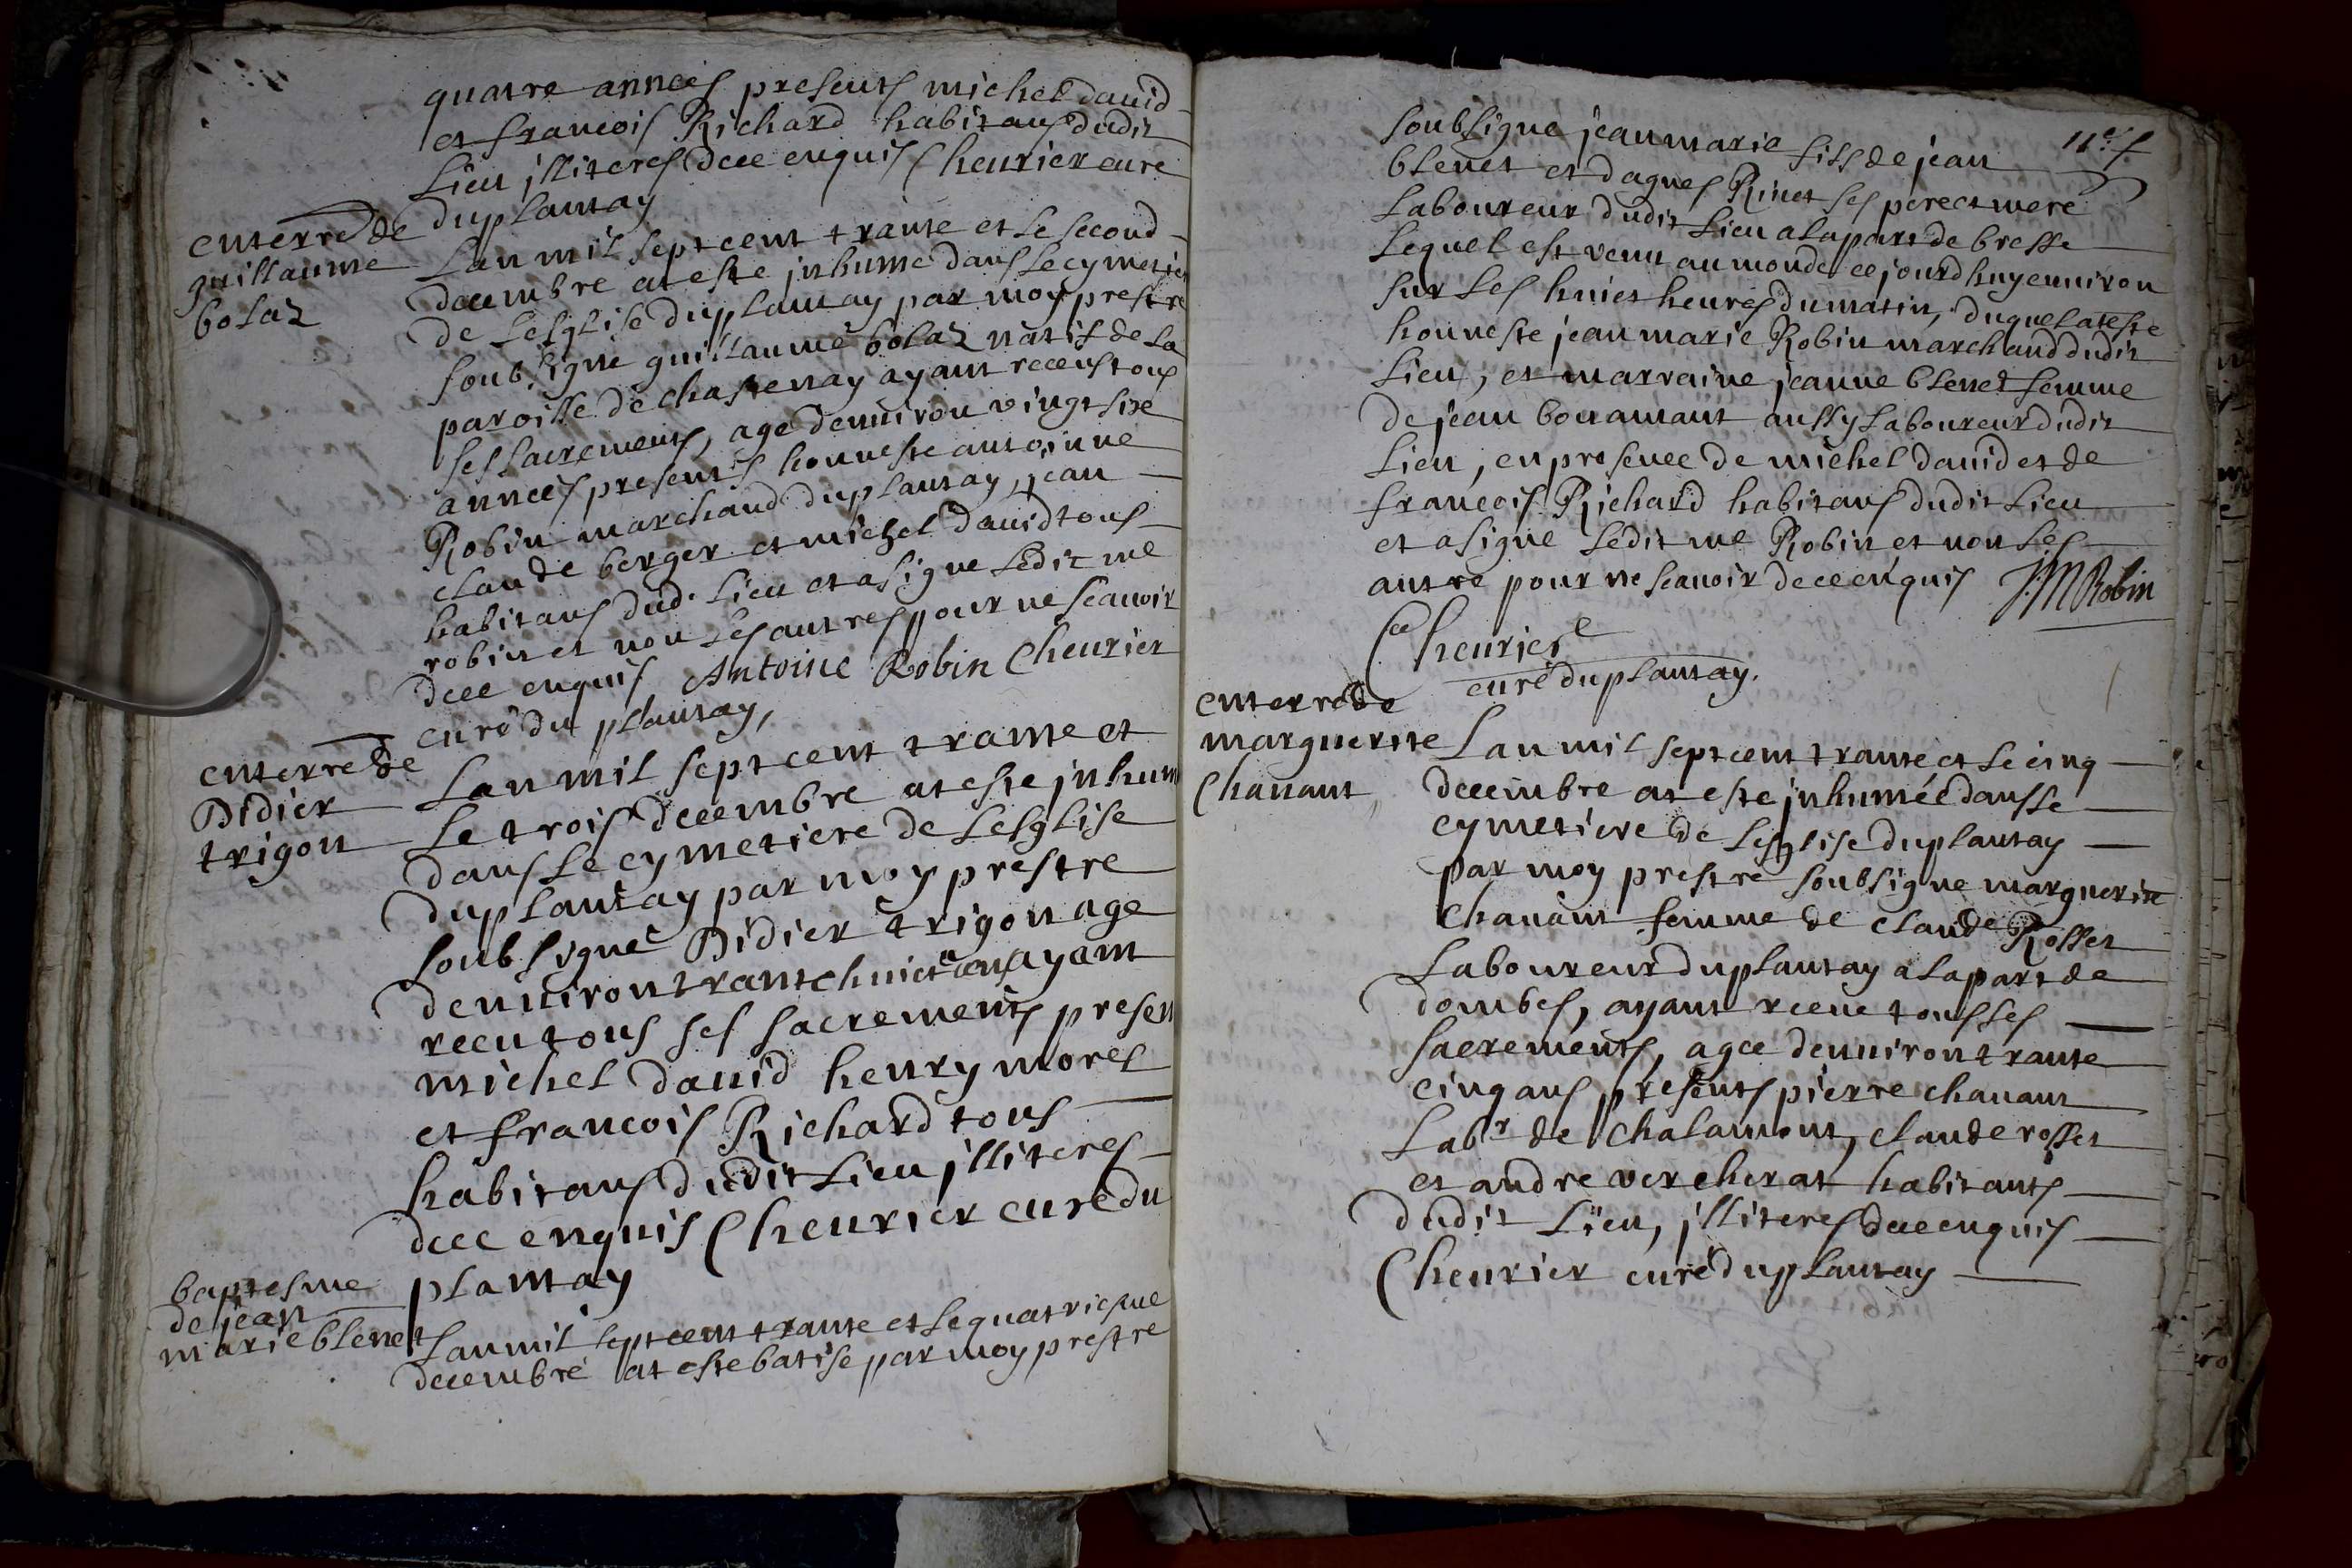 quatre annees presents michel david
et francois Richard habitans dudit
Lieu jlliteres dece enquis Cheurier curé
du plantay
enterre de
guillaume
bolaz
Lan mil sept cent trante et le second
decembre at este jnhumé dans le cymetier
de Lesglise du plantay par moy prestre
soubsigné guillaume bolaz natif de La
paroisse de chastenay ayant receus tous
ses sacrements, agé denuiron vingt sixe
annees presents honneste antoinne
Robin marchand du plantay, jean
claude berger et michel david tous
habitans dud. Lieu et a signe Ledit me
robin et non Les autres pour ne scauoir
dece enquis Antoine Robin Cheurier
curé du plantay,
enterre de
Didier
trigon
Lan mil sept cent trante et
Le trois decembre at este jnhum
dans Le cymetiere de Lesglise
du plantay par moy prestre
soubsigné Didier trigon age
denuiron trante huict ans ayant
receu tous ses sacrements presen
michel david henry morel
et francois Richard tous
habitans dudit Lieu jlliteres
dece enquis Cheurier curé du
plantay
baptesme
de jean
marie blenet
Lan mil sept cent trante et Le quatriesme
decembre at este batisé par moy prestre
11e f
soubsigne jean marie fils de jean
blenet et dagnes Rinet ses pere et mere
Laboureur dudit Lieu a La part de bresse
Lequel est venu au monde ce jourdhuy enuiron
sur Les huict heures du matin, duquel at este
honneste jean marie Robin marchand dudit
Lieu, et marraine jeanne blenet femme
de jean bouamant aussy Laboureur dudit
Lieu, en presence de michel david et de
francois Richard habitans dudit Lieu
et a signé Ledit me Robin et non Les
autre pour ne scauoir dece enquis J:M Robin
Cheurier
curé du plantay.
enterre de
marguerite
Chanant
Lan mil sept cent trante et Le cinq
decembre at este jnhumée dans Le
cymetiere de Lesglise du plantay
par moy prestre soubsigne marguerite
Chanant femme de claude Rosset
Laboureur du plantay a La part de
dombes, ayant receue tous Les
sacrements, agee denuiron trante
cinq ans presents pierre chanant
Labr de Chalamont, claude rosset
et andre vercherat habitants
dudit Lieu, jlliteres dece enquis
Cheurier curé du plantay